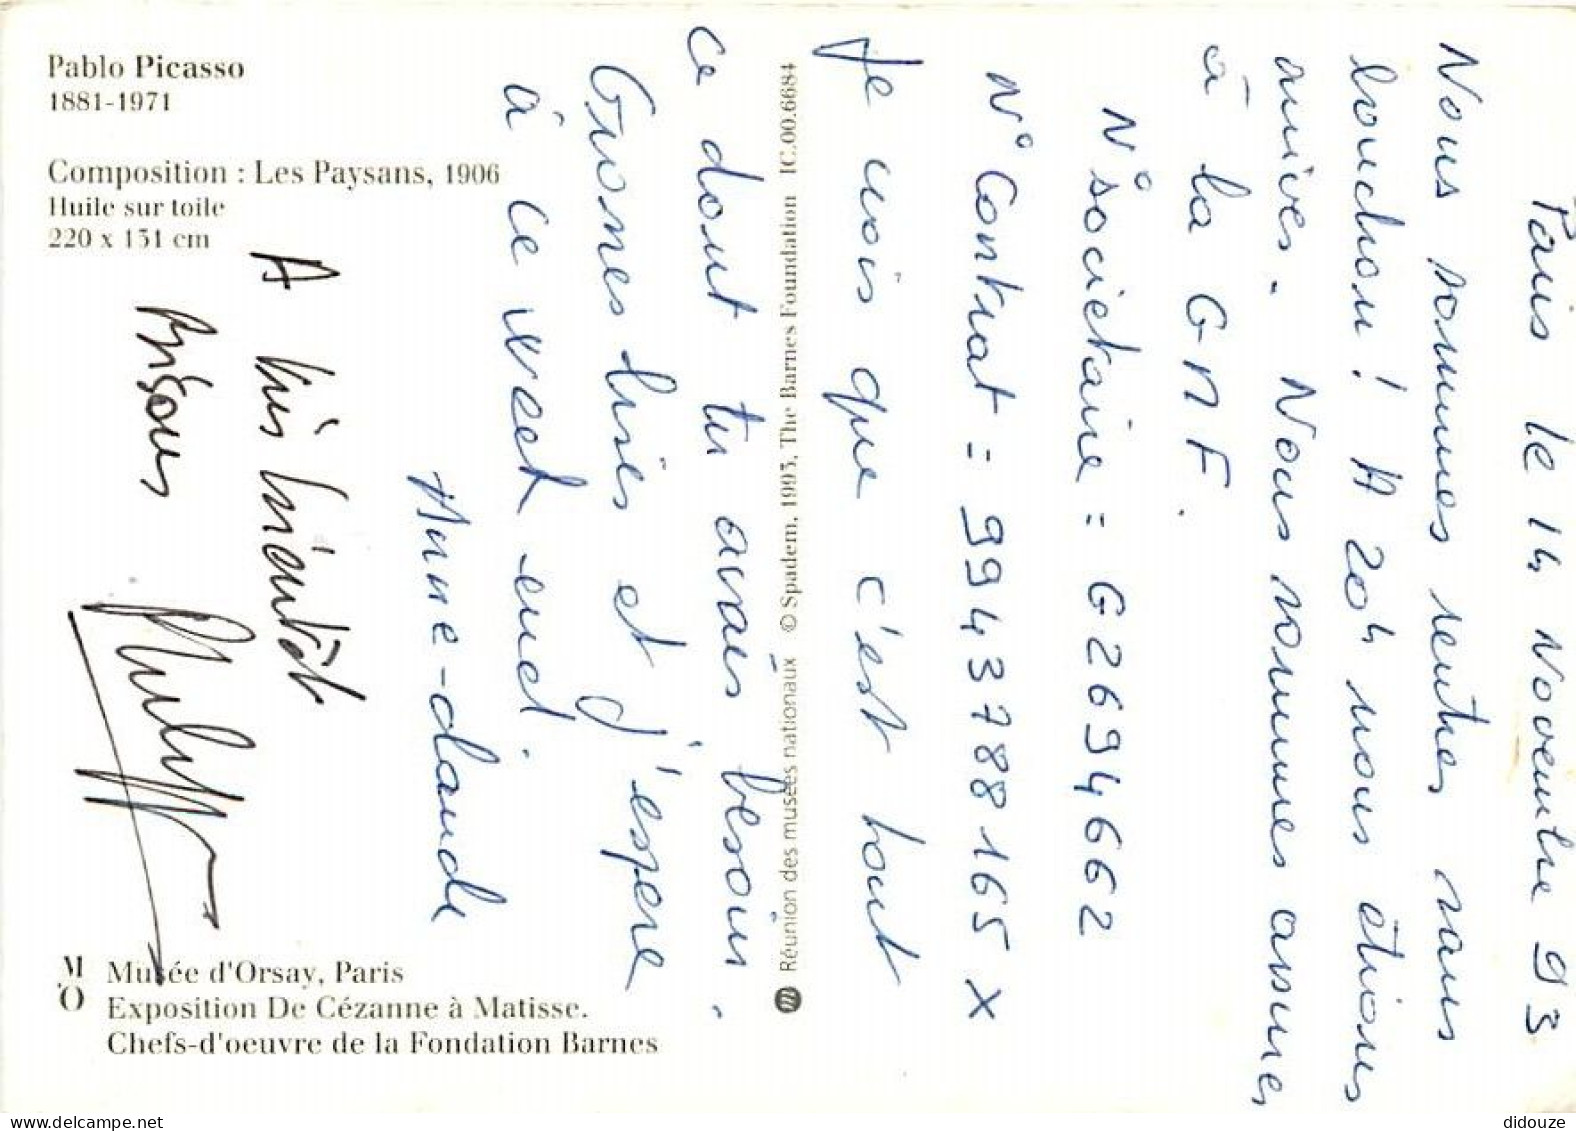 Pablo Picasso
1881-1971
Composition : Les Paysans, 1906
Huile sur toile
220 x 131 cm
Paris le 14 Novembre 93
Nous sommes rentrés sans
bouchon ! A 20h nous étions
arrivés. Nous sommes assurés
à la GMF.
N° sociétaire = G2694662
N° Contrat = 99437 88165 X
Je crois que c'est tout
ce dont tu avais besoin.
Grosses bises et j'espère
à ce week end.
Anne-claude
A très bientôt
Bisous
Réunion des musées nationaux © Spadem, 1993, The Barnes Foundation IC.00.6684
M'O
Musée d'Orsay, Paris
Exposition De Cézanne à Matisse.
Chefs-d'oeuvre de la Fondation Barnes
www.delcampe.net
didouze